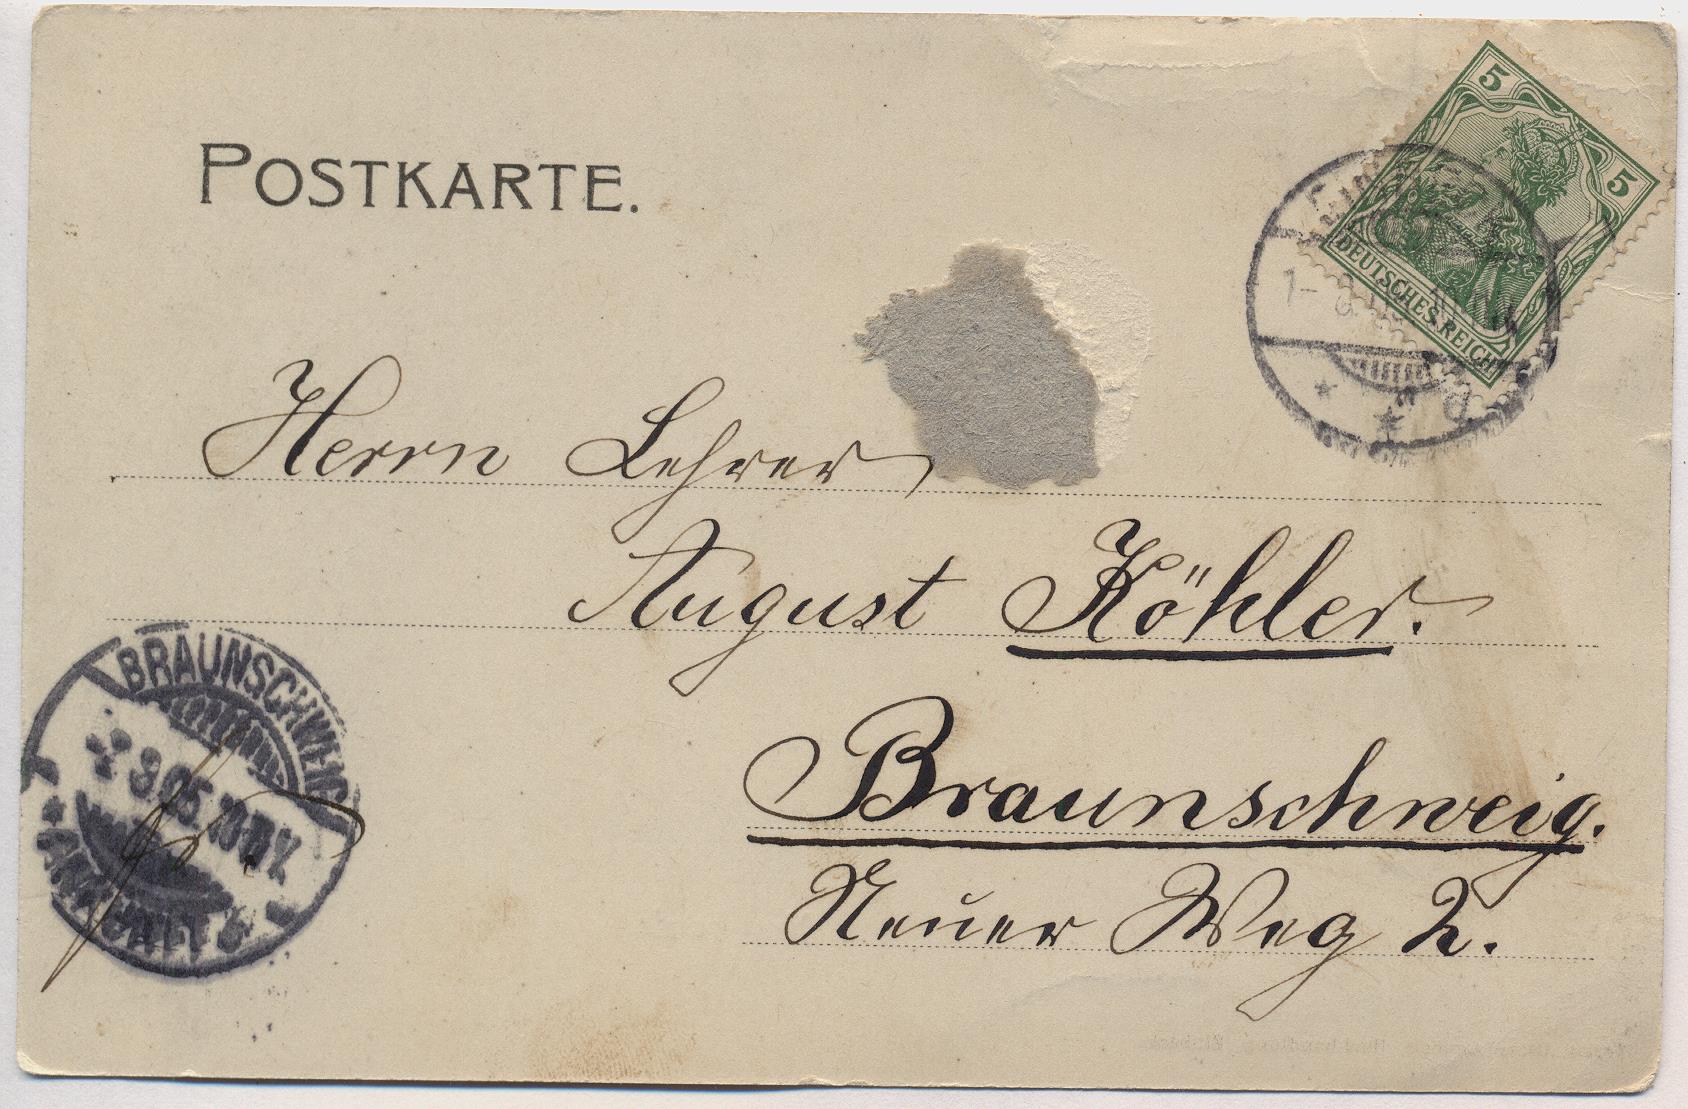 POSTKARTE.
5
5
DEUTSCHES REICH
Herrn Lehrer
August Köhler.
Braunschweig.
Neuer Weg 2.
BRAUNSCHWEIG